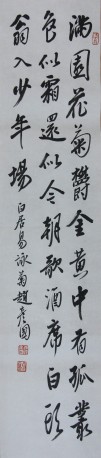 滿園花菊欝金黄中有孤叢
色似霜還似今朝歌酒席白頭
翁入少年場
白居易詠菊趙彦国